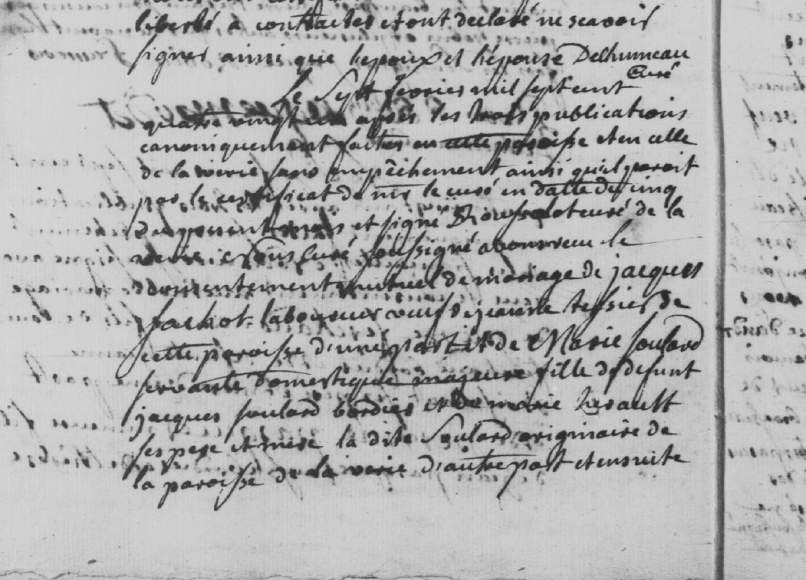 liberté a contracter et ont declaré ne scavoir
signer ainsi que lepoux et lépouse Delhumeau
Curé
le Sept fevrier mil sept cent
quatre vingt un apres les trois publications
canoniquement faites en cette paroisse et en celle
de la verie sans empêchement ainsi quil paroit
par le certificat de mr le curé en datte de cinq
du present mois et signé Rousselot curé de la
verie je sous curé soussigné avons receu le
consentement mutuel de mariage de jacques
fachot laboureur veuf de jeanne tessier de
cette paroisse d'une part et de Marie soulard
servante domestique majeure fille de defunt
jacques soulard bordier et de marie herault
ses pere et mere la dite Soulard originaire de
la paroisse de la verie d'autre part et ensuite